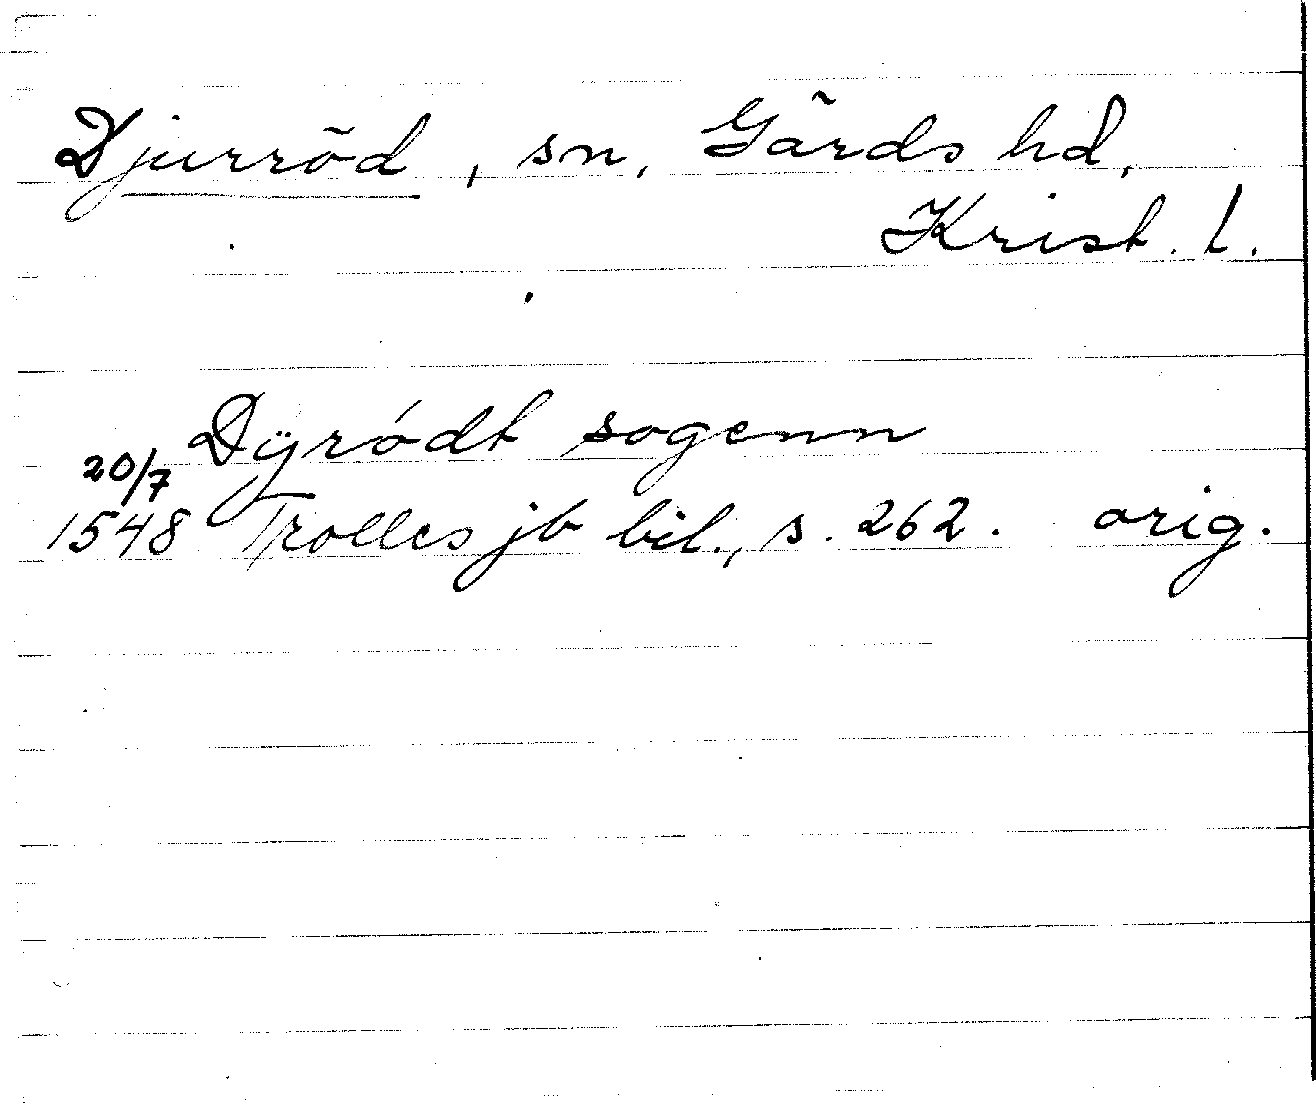 Djurröd, sn, Gärds hd,
Krist. l.
Dÿródt sogenn
20/7
1548 Trolles jb bil., s. 262. orig.